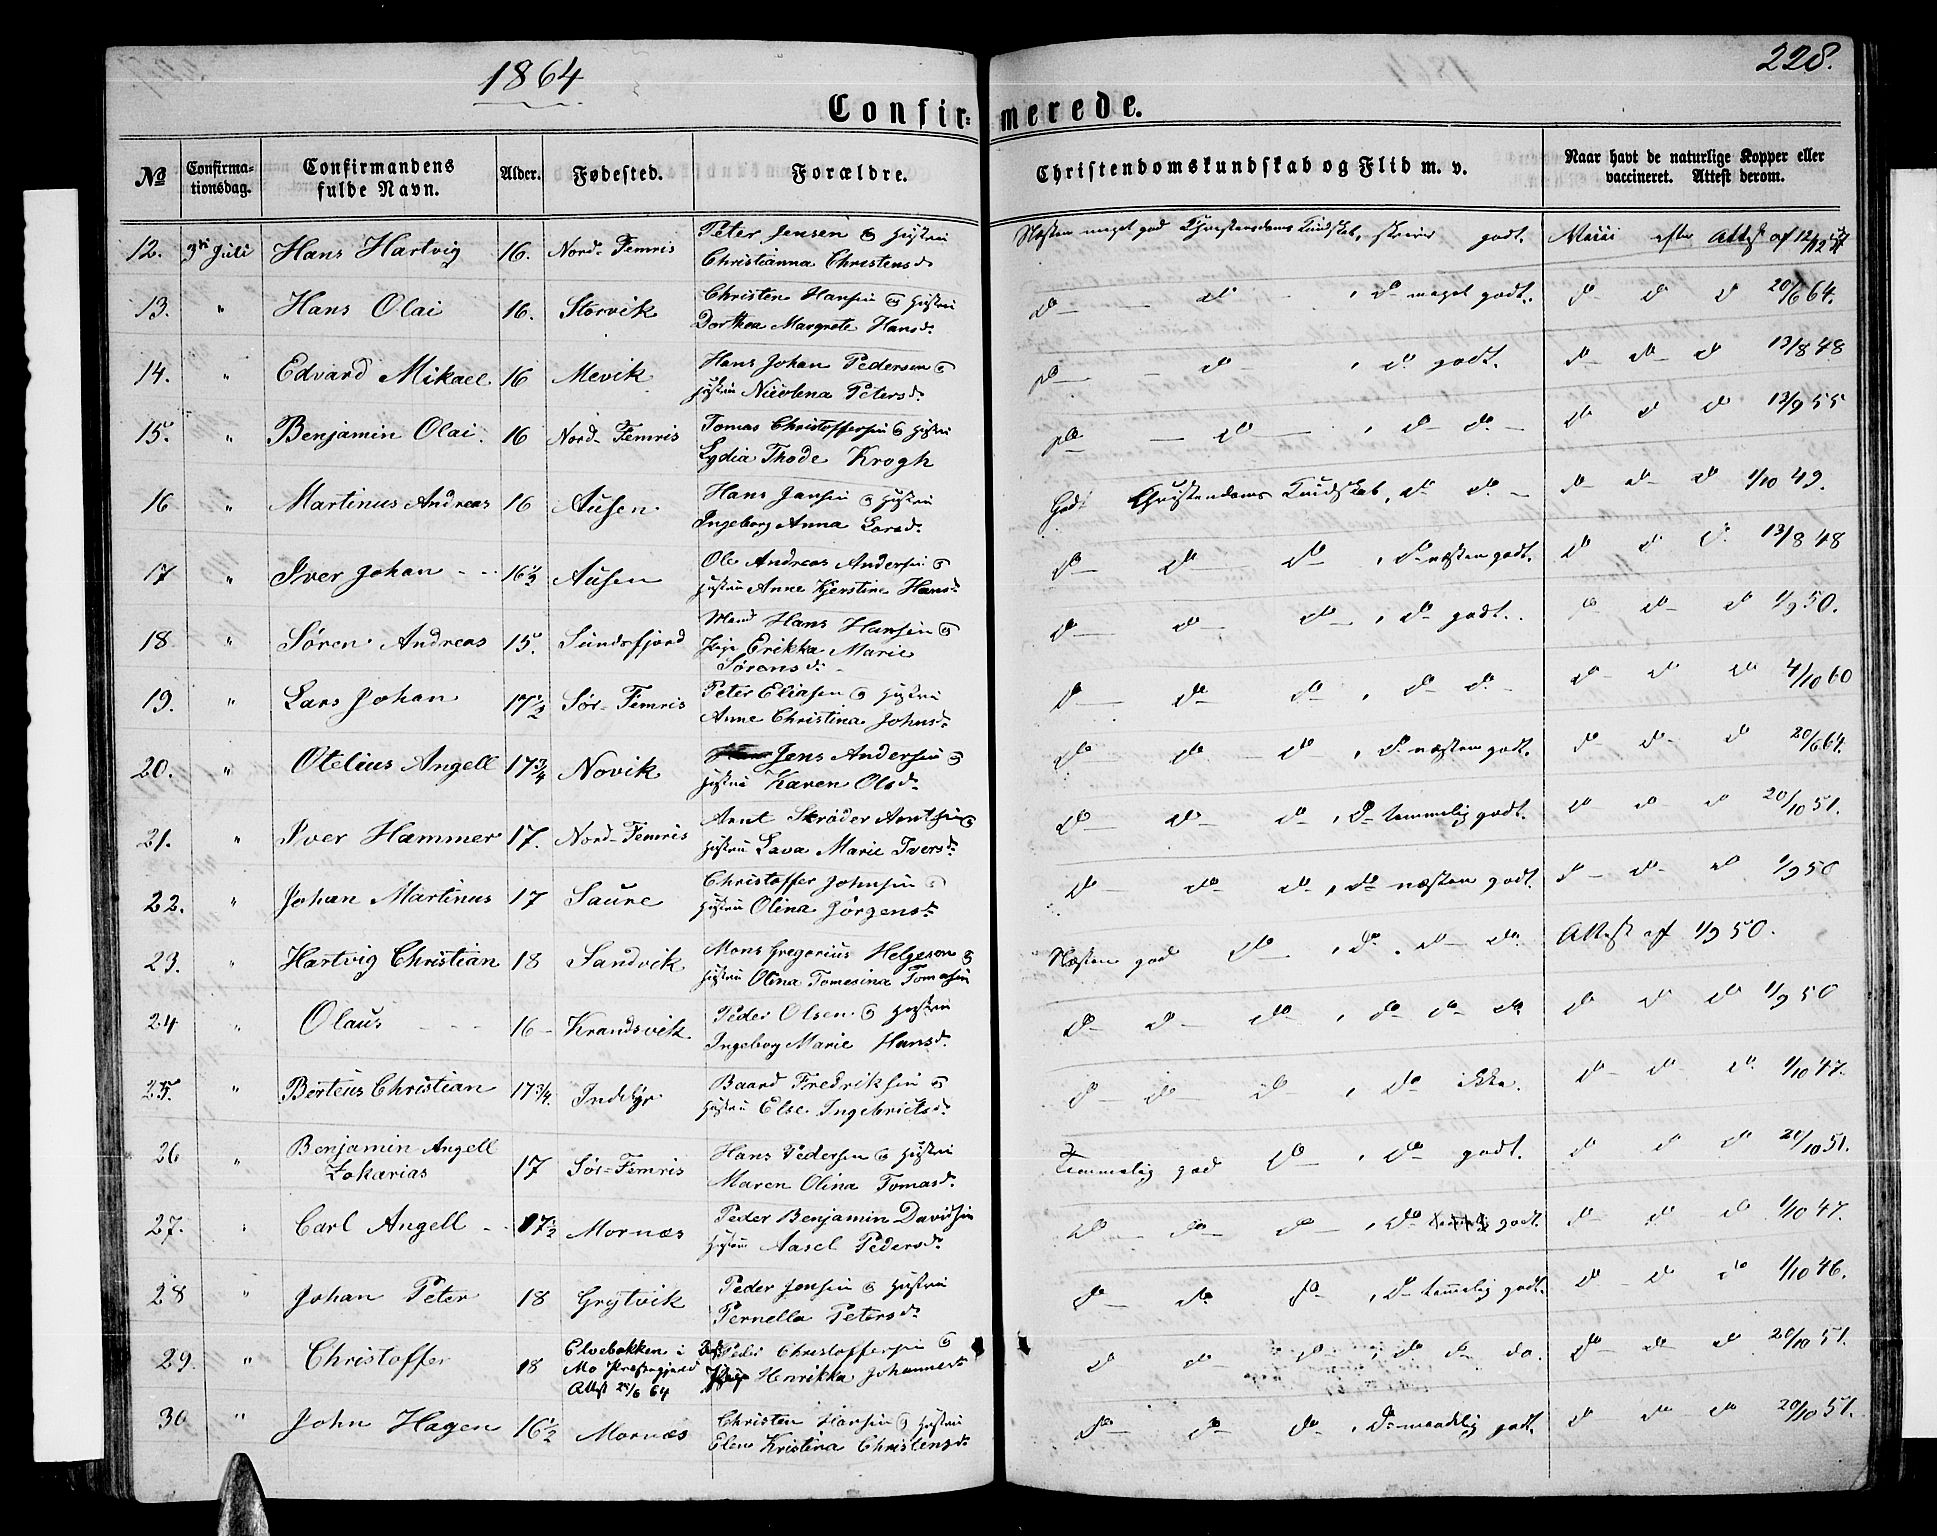 1864
228.
Confirmerede.
№ Confirmationsdag. Confirmandens fulde Navn. Alder. Fødested. Forældre. Christendomskundskab og Flid m. v. Naar havt de naturlige Kopper eller vaccineret. Attest derom.
12. 3die Juli Hans Hartvig 16. Nord-Femris Peter Jensen & Hustru Christianna Christensd. Næsten meget god Christendoms Kundskab, skriver godt. Attest af
13. " Hans Olai 16. Storvik Christen Hansen & Hustru Dorthea Margrete Hansd. do — do — , do meget godt. do do do 20/6 64.
14. " Edvard Mikael 16 Mevik Hans Johan Pedersen & Hustru Nicolena Petersd. do — do — , do godt. do do do 13/8 48
15. " Benjamin Olai. 16 Nord-Femris Tomas Christoffersen & Hustru Lydia Thode Krogh do — do — , do do — do do do 13/9 55
16 " Martinus Andreas 16 Ausen Hans Jansen & Hustru Ingeborg Anna Larsd. Godt Christendoms Kundskab, do do — do do do 1/10 49.
17 " Iver Johan 16½ Ausen Ole Andreas Andersen & Hustru Anne Kjerstine Hansd. do do do , do næsten godt. do do do 13/8 48
18. " Søren Andreas 15. Sundsfjord Hans Hansen & Erikka Marie Sørensd. do do do , do godt. do do do 1/9 50.
19. " Lars Johan 17½ Sør-Femris Peter Eliasen & Hustru Anne Christina Johnsd. do do do , do do do do do 4/10 60
20. " Otelius Angell 17¾ Novik Jens Andersen & Hustru Karen Olsd. do do do , do næsten godt. do do do 20/6 64.
21. " Iver Hammer 17. Nord-Femris Arnt Skrøder Arntsen & Hustru Lava Marie Iversd. do do do , do temmelig godt. do do do 20/10 51.
22. " Johan Martinus 17 Saure Christoffer Johnsen & Hustru Olina Jørgensd. do do do , do næsten godt. do do do 1/9 50
23. " Hartvig Christian 18 Sandvik Mons Gregorius Helgesen & Hustru Olina Tomesina Tomasen Næsten god do , do do do Attest af 1/9 50.
24 " Olaus 16 Krandsvik Peder Olsen & Hustru Ingeborg Marie Hansd. do do do , do do do do do do 1/9 50
25. " Berteus Christian 17¾. Inddyr Baard Fredriksen & Hustru Else Ingebrictsd. do do do , do ikke. do do do 1/10 47.
26 " Benjamin Angell Zakarias 17 Sør-Femris Hans Pedersen & Hustru Maren Olina Tomasd. Temmelig god do , do godt. do do do 20/10 51.
27. " Carl Angell 17½ Mornæs Peder Benjamin Davidsen Hustru Aasel Pedersd. do do do , do godt. do do do 1/10 47.
28 " Johan Peter 18 Grytvik Peder Jensen & Hustru Pernella Petersd. do do do , do temmelig godt. do do do 1/10 46.
29. " Christoffer 18 Elvebakken i Mo Præstegjeld Attest 20/6 64 Peder Christoffersen & Henrikka Johannesd. do do do , do do do. do do do 20/10 51.
30 " John Hagen 16½ Mornæs Christen Hansen & Hustru Elene Kristina Christensd. do do do , do maadelig godt. do do do 20/10 51.